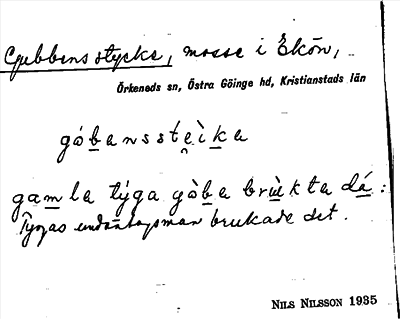 Gubbensstycke, mosse i Ekön,
Örkeneds sn, Östra Göinge hd, Kristianstads län
góbansstèika
gamla týga gòba brùkta dá:
Tygas undantagsman brukade det.
NILS NILSSON 1935